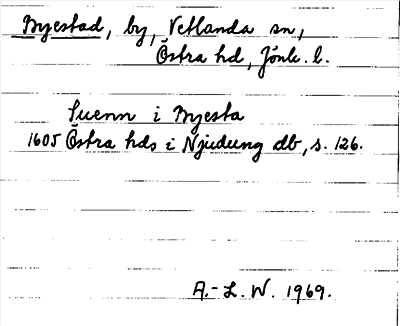 Myestad, by, Vetlanda sn,
Östra hd, Jönk. l.
Suenn i Myesta
1605 Östra hds i Njudung db, s. 126.
A.-L. W. 1969.